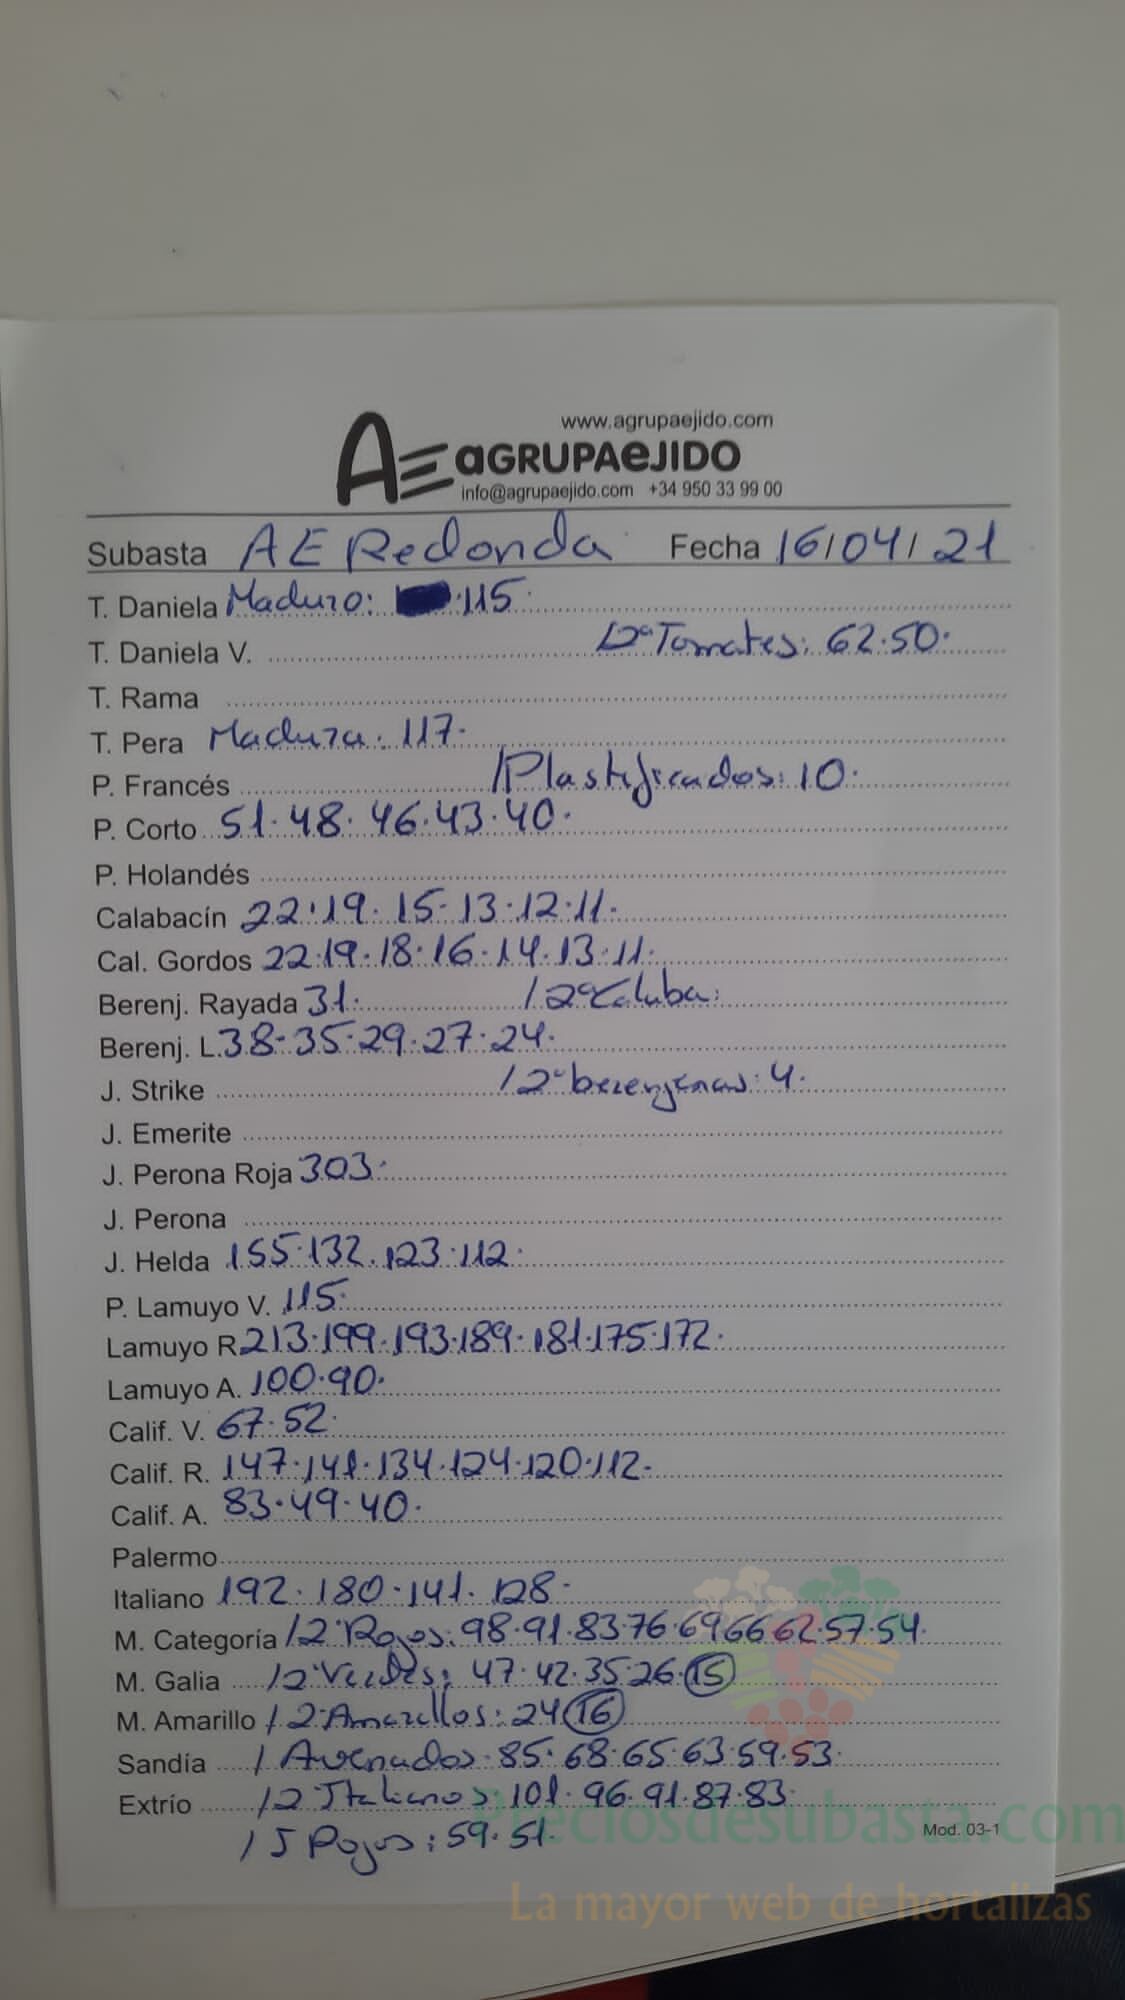 www.agrupaejido.com
AE aGRUPAeJIDO
info@agrupaejido.com +34 950 33 99 00
Subasta AE Redonda Fecha 16/04/21
T. Daniela Maduro: 115.
T. Daniela V. /2ª Tomates: 62.50.
T. Rama
T. Pera Madura: 117.
P. Francés /Plastificados: 10.
P. Corto 51.48.46.43.40.
P. Holandés
Calabacín 22.19.15.13.12.11.
Cal. Gordos 22.19.18.16.14.13.11.
Berenj. Rayada 31. /2ª Caluba:
Berenj. L. 38.35.29.27.24.
J. Strike /2ª berenjenas: 4.
J. Emerite
J. Perona Roja 303.
J. Perona
J. Helda 155.132.123.112.
P. Lamuyo V. 115.
Lamuyo R. 213.199.193.189.181.175.172.
Lamuyo A. 100.90.
Calif. V. 67.52.
Calif. R. 147.141.134.124.120.112.
Calif. A. 83.49.40.
Palermo
Italiano 192.180.141.128.
M. Categoría /2ª Rojos: 98.91.83.76.69.66.62.57.54.
M. Galia /2ª Verdes: 47.42.35.26.15
M. Amarillo /2 Amarillos: 24 16
Sandía / Asurcados: 85.68.65.63.59.53.
Extrío /2 Italianos: 101.96.91.87.83.
/J Rojos: 59.51.
Mod. 03-1
Preciosdesubasta.com
La mayor web de hortalizas